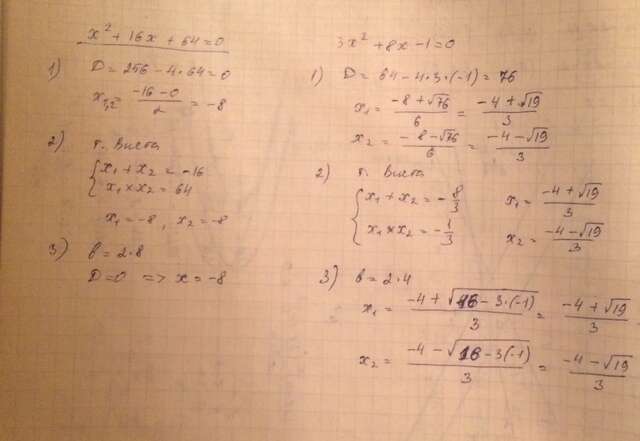 x² + 16x + 64 = 0
1) D = 256 - 4·64 = 0
x₁,₂ = (-16-0)/2 = -8
2) т. Виета
{x₁ + x₂ = -16
x₁ × x₂ = 64
x₁ = -8, x₂ = -8
3) b = 2·8
D=0 => x = -8
3x² + 8x - 1 = 0
1) D = 64 - 4·3·(-1) = 76
x₁ = (-8 + √76)/6 = (-4 + √19)/3
x₂ = (-8 - √76)/6 = (-4 - √19)/3
2) т. Виета
{x₁ + x₂ = -8/3 x₁ = (-4 + √19)/3
x₁ × x₂ = -1/3 x₂ = (-4 - √19)/3
3) b = 2·4
x₁ = (-4 + √(16 - 3·(-1)))/3 = (-4 + √19)/3
x₂ = (-4 - √(16 - 3(-1)))/3 = (-4 - √19)/3